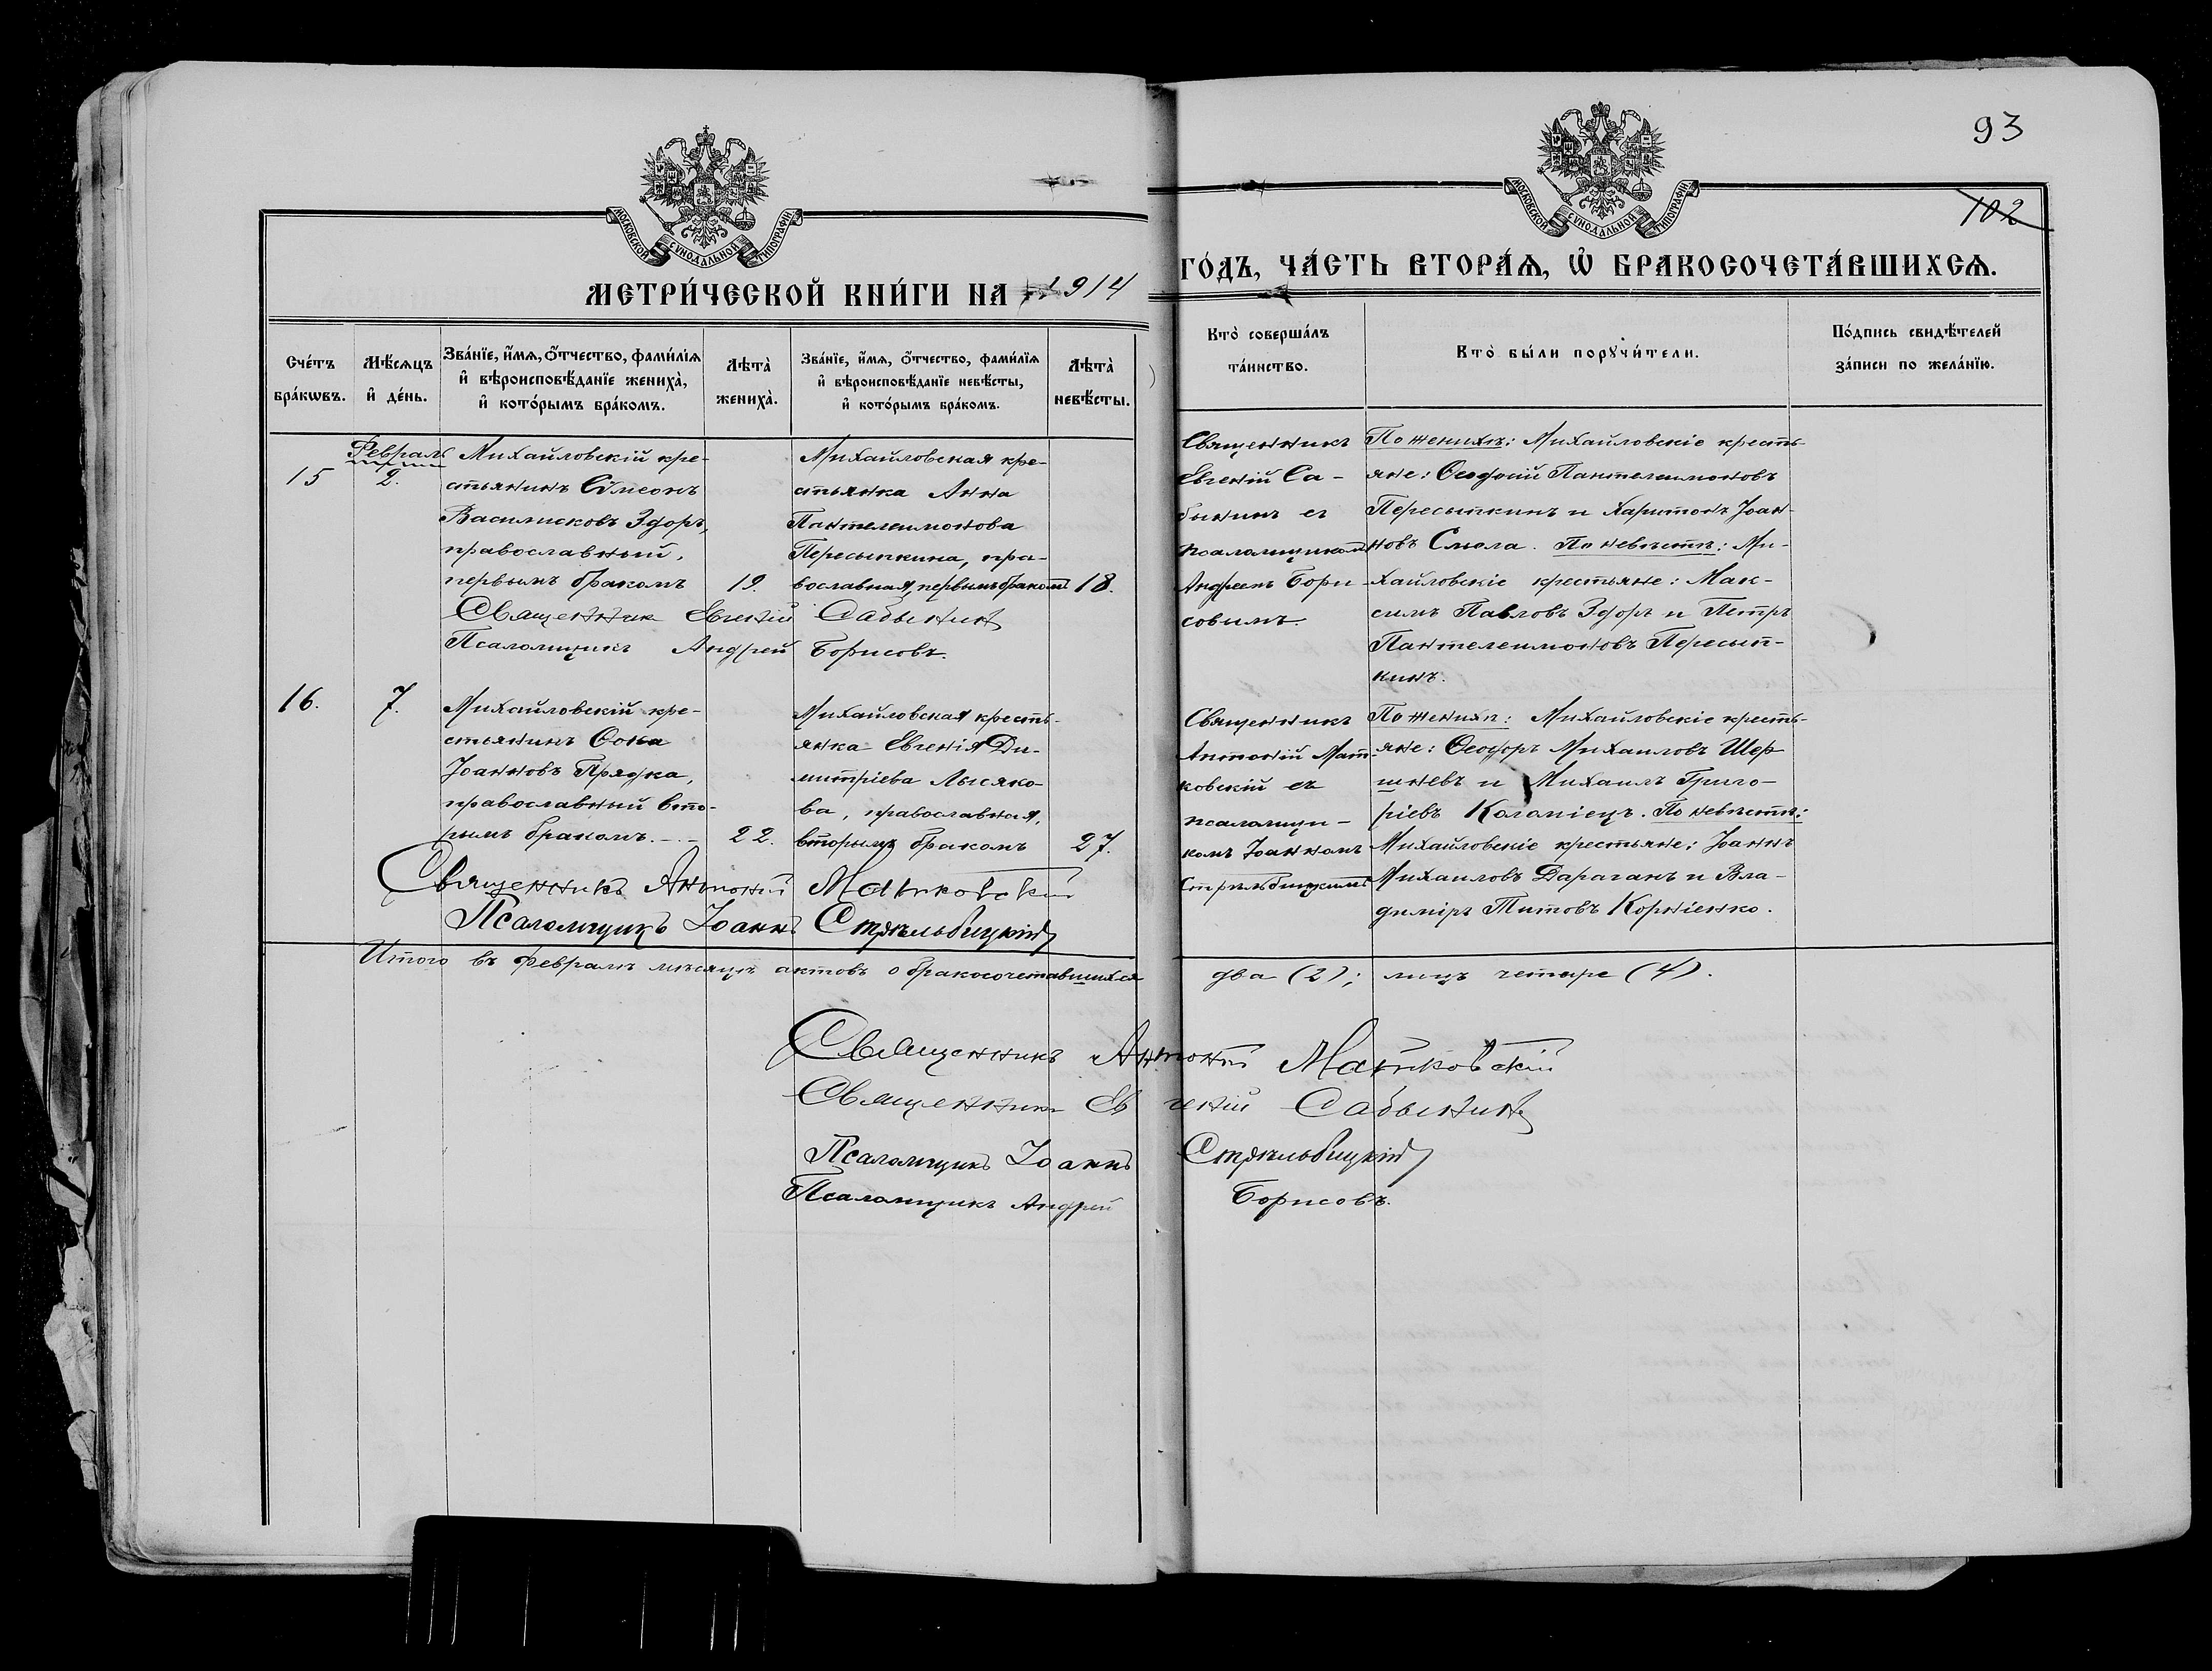 93
102
МОСКОВСКОЙ СѴНОДАЛЬНОЙ ТИПОГРАФІИ
МОСКОВСКОЙ СѴНОДАЛЬНОЙ ТИПОГРАФІИ
МЕТРИ́ЧЕСКОЙ КНИ́ГИ НА 1914
ГО́ДЪ, ЧА́СТЬ ВТОРА́Ѧ, Ѽ БРАКОСОЧЕТА́ВШИХСѦ.
Сче́тъ
бра́кѡвъ.
Мѣ́сѧцъ
и҆ де́нь.
Зва́нїе, и҆́мѧ, ѻ҆́тчество, фами́лїѧ
и҆ вѣроисповѣ́данїе жениха̀,
и҆ кото́рымъ бра́комъ.
Лѣта̀
жениха̀.
Зва́нїе, и҆́мѧ, ѻ҆́тчество, фами́лїѧ
и҆ вѣроисповѣ́данїе невѣ́сты,
и҆ кото́рымъ бра́комъ.
Лѣта̀
невѣ́сты.
Кто̀ соверша́лъ
та́инство.
Кто̀ бы́ли порꙋчи́тели.
По́дпись свидѣ́телей
за́писи по жела́нїю.
15
Февраль
2.
Михайловскій кре-
стьянинъ Сѵмеонъ
Василисковъ Здоръ,
православный,
первымъ бракомъ
19.
Михайловская кре-
стьянка Анна
Пантелеимонова
Пересыпкина, пра-
вославная, первымъ бракомъ
18.
Священникъ
Евгеній Са-
бынинъ съ
псаломщикомъ
Андреемъ Бори-
совымъ.
По женихѣ: Михайловскіе кресть-
яне: Ѳеодосій Пантелеимоновъ
Пересыпкинъ и Харитонъ Іоан-
новъ Смола. По невѣстѣ: Ми-
хайловскіе крестьяне: Мак-
симъ Павловъ Здоръ и Петръ
Пантелеимоновъ Пересып-
кинъ.
Священник Евгеній Сабынинъ
Псаломщикъ Андрей Борисовъ.
16.
7.
Михайловскій кре-
стьянинъ Ѳома
Іоанновъ Прядка,
православный вто-
рымъ бракомъ.
22.
Михайловская кресть-
янка Евгенія Ди-
митріева Лысяко-
ва, православная,
вторымъ бракомъ
27.
Священникъ
Антоній Мат-
ковскій съ
псаломщи-
комъ Іоанномъ
Стрѣльбицкимъ
По женихѣ: Михайловскіе кресть-
яне: Ѳеодоръ Михаиловъ Шер-
шневъ и Михаилъ Григо-
ріевъ Коломіецъ. По невѣстѣ:
Михайловскіе крестьяне: Іоаннъ
Михаиловъ Дараганъ и Вла-
диміръ Титовъ Корніенко.
Священникъ Антоній Матковскій
Псаломщикъ Іоаннъ Стрѣльбицкій
Итого въ февралѣ мѣсяцѣ актовъ о бракосочетавшихся два (2); лицъ четыре (4).
Священникъ Антоній Матковскій
Священникъ Евгеній Сабынинъ
Псаломщикъ Іоаннъ Стрѣльбицкій
Псаломщикъ Андрей Борисовъ.